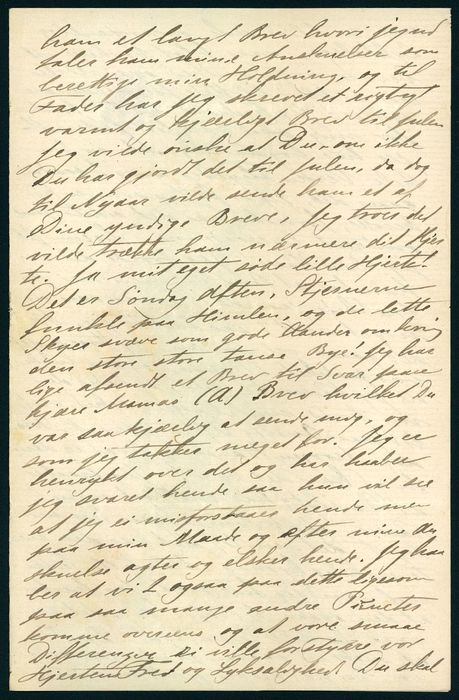 ham et langt Brev hvori jeg ud
taler ham mine Anskuelser som
berettige min Holdning, og til
Fader har jeg skrevet et rigtigt
varmt og kjærligt Brev til Julen
Jeg vilde ønske at Du, om ikke
Du har gjordt det til Julen, da dog
til Nyaar vilde sende ham et af
Dine yndige Breve, jeg troer det
vilde trække ham nærmere dit Hjer
te. Ja mit eget søde lille Hjerte!
Det er Søndag Aften, Stjernerne
funkle paa Himlen, og de lette
Skyer svæve som gode Aander omkring
den store store tause Bye! Jeg har
lige afsendt et Brev til Svar paa
kjære Mamas (A) Brev hvilket Du
var saa kjærlig at sende mig, og
som jeg takker meget for. Jeg er
henrykt over det og har
jeg svaret hende saa hun vil see
at jeg ei misforstaaes hende men
paa min Maade og efter mine An
skuelse agter og elsker hende. Jeg haa
ber at vi 2 ogsaa paa dette ligesom
paa saa mange andre Puncter
komme overeens og at vore smaae
Differenzen ei ville forstyrre vor
Hjertens Fred og Lyksalighed. Du skal